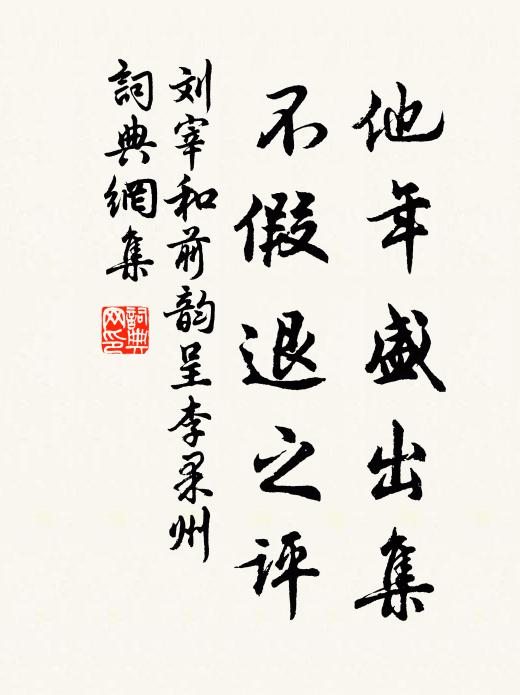 他年盛出集
不假退之评
刘宰和前韵呈李果州
詞典網集
詞典网印